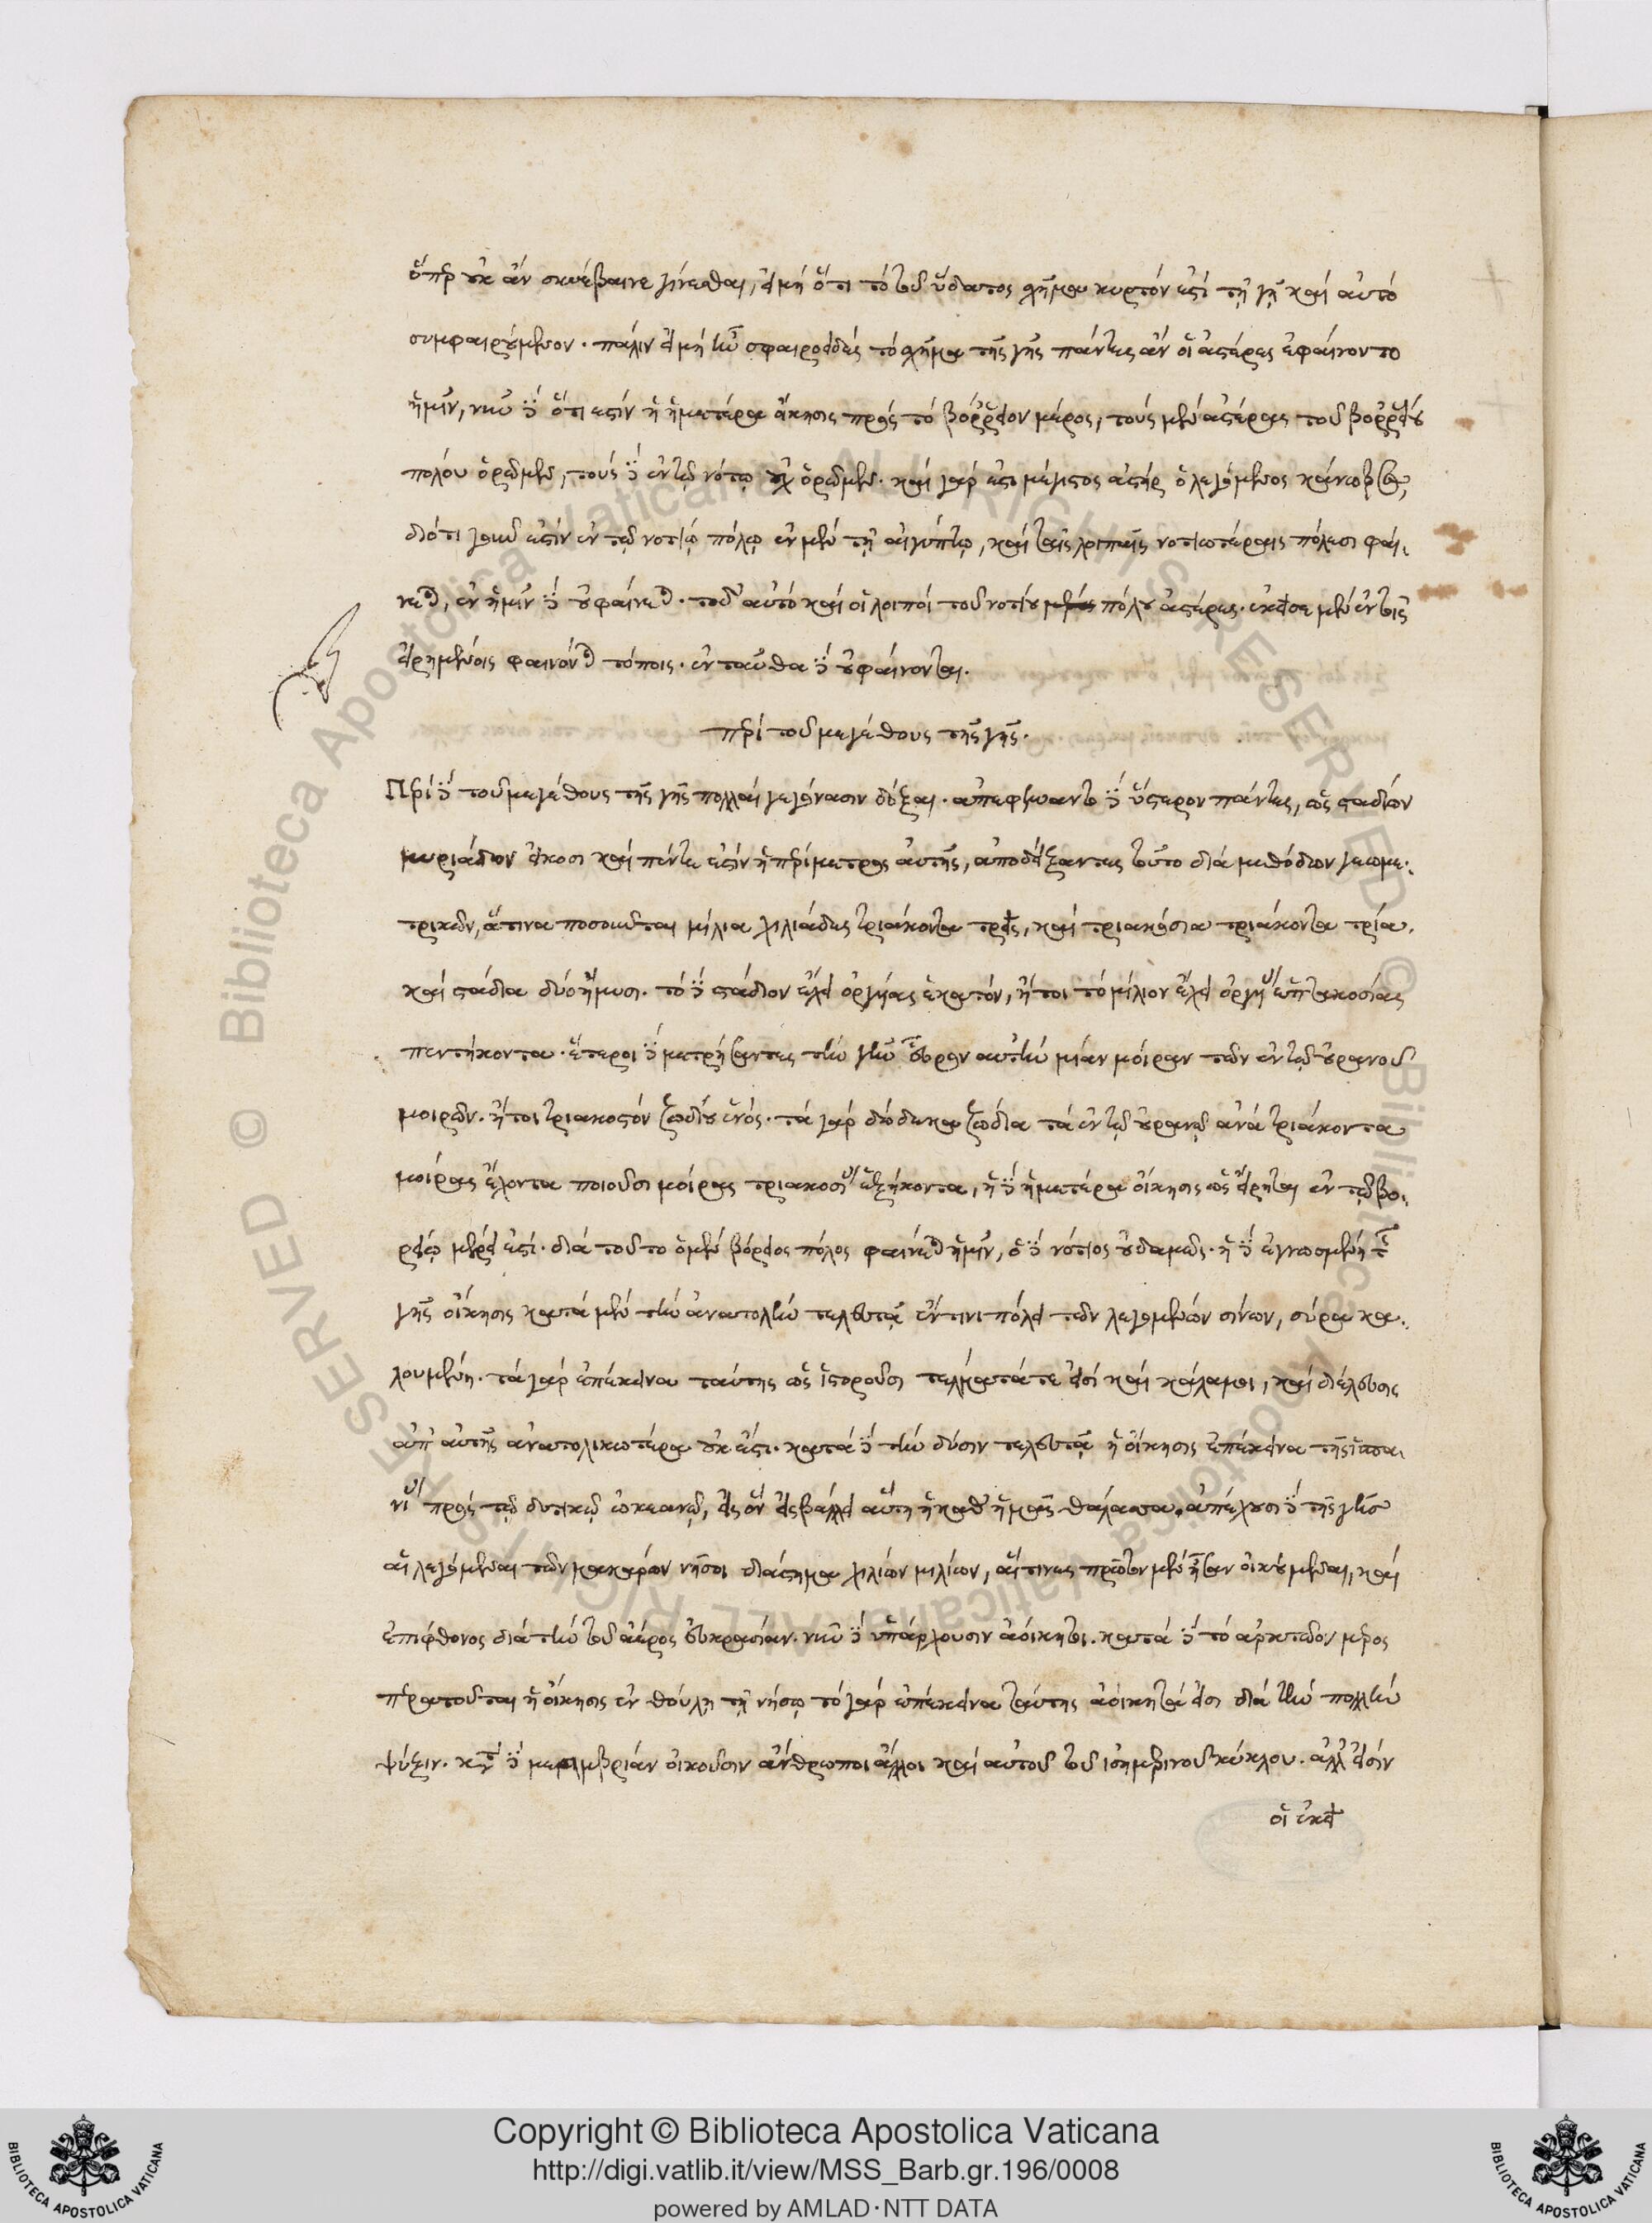 ὅπερ οὐκ ἂν συνέβαινε γίνεσθαι, εἰ μὴ ὅτι τὸ τοῦ ὕδατος σχῆμα κυρτόν ἐστι τῇ γῇ καὶ αὐτὸ
συμφαιρούμενον. πάλιν εἰ μὴ ἦν σφαιροειδὲς τὸ σχῆμα τῆς γῆς πάντες ἂν οἱ ἀστέρες ἐφαίνοντο
ἡμῖν, νῦν δὲ ὅτι ἐστὶν ἡ ἡμετέρα οἴκησις πρὸς τὸ βόρρειον μέρος, τοὺς μὲν ἀστέρας τοῦ βορρείου
πόλου ὁρῶμεν, τοὺς δὲ ἐν τῷ νότῳ οὐχ ὁρῶμεν. καὶ γάρ ἐστι μέγιστος ἀστὴρ ὁ λεγόμενος κάνωβος,
διότι γοῦν ἐστὶν ἐν τῷ νοτίῳ πόλῳ ἐν μὲν τῇ αἰγύπτῳ, καὶ ταῖς λοιπαῖς νοτιωτέραις πόλεσι φαί-
νεται, ἐν ἡμῖν δὲ οὐ φαίνεται. τοῦτ' αὐτὸ καὶ οἱ λοιποὶ τοῦ νοτίου πόλου ἀστέρες. ἐκεῖσε μὲν ἐν τοῖς
εἰρημένοις φαίνονται τόποις. ἐνταῦθα δὲ οὐ φαίνονται.
περὶ τοῦ μεγέθους τῆς γῆς.
Περὶ δὲ τοῦ μεγέθους τῆς γῆς πολλαὶ γεγόνασιν δόξαι. ἀπεφήναντο δὲ ὕστερον πάντες, ὡς σταδίων
μυριάδων εἴκοσι καὶ πέντε ἐστὶν ἡ περίμετρος αὐτῆς, ἀποδείξαντες τοῦτο διὰ μεθόδων γεωμε-
τρικῶν, ἅτινα ποσοῦνται μίλια χιλιάδες τριάκοντα τρεῖς, καὶ τριακόσια τριάκοντα τρία.
καὶ στάδια δύο ἥμισυ. τὸ δὲ στάδιον ἔχει ὀργυίας ἑκατὸν, ἤτοι τὸ μίλιον ἔχει ὀργυίας ἑπτακοσίας
πεντήκοντα. ἕτεροι δὲ μετρήσαντες τὴν γῆν εὗρον αὐτὴν μίαν μοῖραν τῶν ἐν τῷ οὐρανοῦ
μοιρῶν. ἤτοι τριακοστὸν ζωδίου ἑνός. τὰ γὰρ δώδεκα ζώδια τὰ ἐν τῷ οὐρανῷ ἀνὰ τριάκοντα
μοίρας ἔχοντα ποιοῦσι μοίρας τριακοσίας ἑξήκοντα, ἡ δὲ ἡμετέρα οἴκησις ὡς εἴρηται ἐν τῷ βο-
ρείῳ μέρει ἐστί. διὰ τοῦτο ὁ μὲν βόρειος πόλος φαίνεται ἡμῖν, ὁ δὲ νότιος οὐδαμῶς. ἡ δὲ ἐγνωσμένη τῆς
γῆς οἴκησις κατὰ μὲν τὴν ἀνατολὴν τελευτᾷ ἔν τινι πόλει τῶν λεγομένων σίνων, σύρα κα-
λουμένη. τὰ γὰρ ἐπέκεινα ταύτης ὡς ἱστοροῦσι τέλματά τε εἰσὶ καὶ κάλαμοι, καὶ διέλευσις
ἀπ' αὐτῆς ἀνατολικωτέρα οὐκ ἔστι. κατὰ δὲ τὴν δύσιν τελευτᾷ ἡ οἴκησις ἐπέκεινα τῆς ἱσπα-
νίας πρὸς τῷ δυτικῷ ὠκεανῷ, εἰς ὃν εἰσβάλλει αὕτη ἡ καθ' ἡμᾶς θάλασσα. ἀπέχουσι δὲ τῆς γῆς
αἱ λεγόμεναι τῶν μακάρων νῆσοι διάστημα χιλίων μιλίων, αἵτινες πρῶτον μὲν ἦσαν οἰκούμεναι, καὶ
ἐπίφθονος διὰ τὴν τοῦ ἀέρος εὐκρασίαν. νῦν δὲ ὑπάρχουσιν ἀοίκητοι. κατὰ δὲ τὸ ἀρκτῶον μέρος
περατοῦται ἡ οἴκησις ἐν θούλῃ τῇ νήσῳ τὸ γὰρ ἐπέκεινα ταύτης ἀοίκητά εἰσι διὰ τὴν πολλὴν
ψύξιν. κατὰ δὲ μεσημβρίαν οἰκοῦσιν ἄνθρωποι ἄλλοι καὶ αὐτοῦ τοῦ ἰσημερινοῦ κύκλου. ἀλλ' εἰσὶν
οἱ ἐκεῖ
© Biblioteca Apostolica Vaticana ALL RIGHTS RESERVED
© Biblioteca Apostolica Vaticana ALL RIGHTS RESERVED
Copyright © Biblioteca Apostolica Vaticana
http://digi.vatlib.it/view/MSS_Barb.gr.196/0008
powered by AMLAD·NTT DATA
BIBLIOTECA APOSTOLICA VATICANA
BIBLIOTECA APOSTOLICA VATICANA